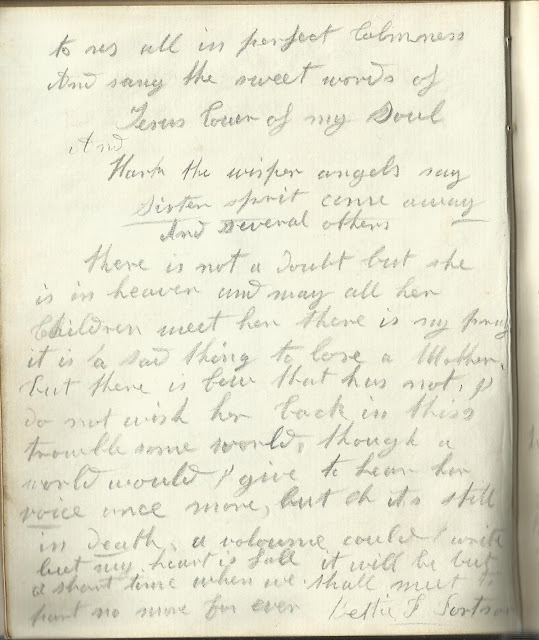 to us all in perfect Calmness
And sang the sweet words of
Jesus lover of my Soul
And
Hark the wisper angels say
Sister sprit come away
And several others
there is not a doubt but she
is in heaven and may all her
Children meet her there is my pray
it is a sad thing to lose a Mother,
but there is few that has not, I
do not wish her back in this
trouble some world, though a
world would I give to hear her
voice once more, but oh its still
in death, a voloume could I write
but my heart is full it will be but
a short time when we shall meet to
part no more for ever